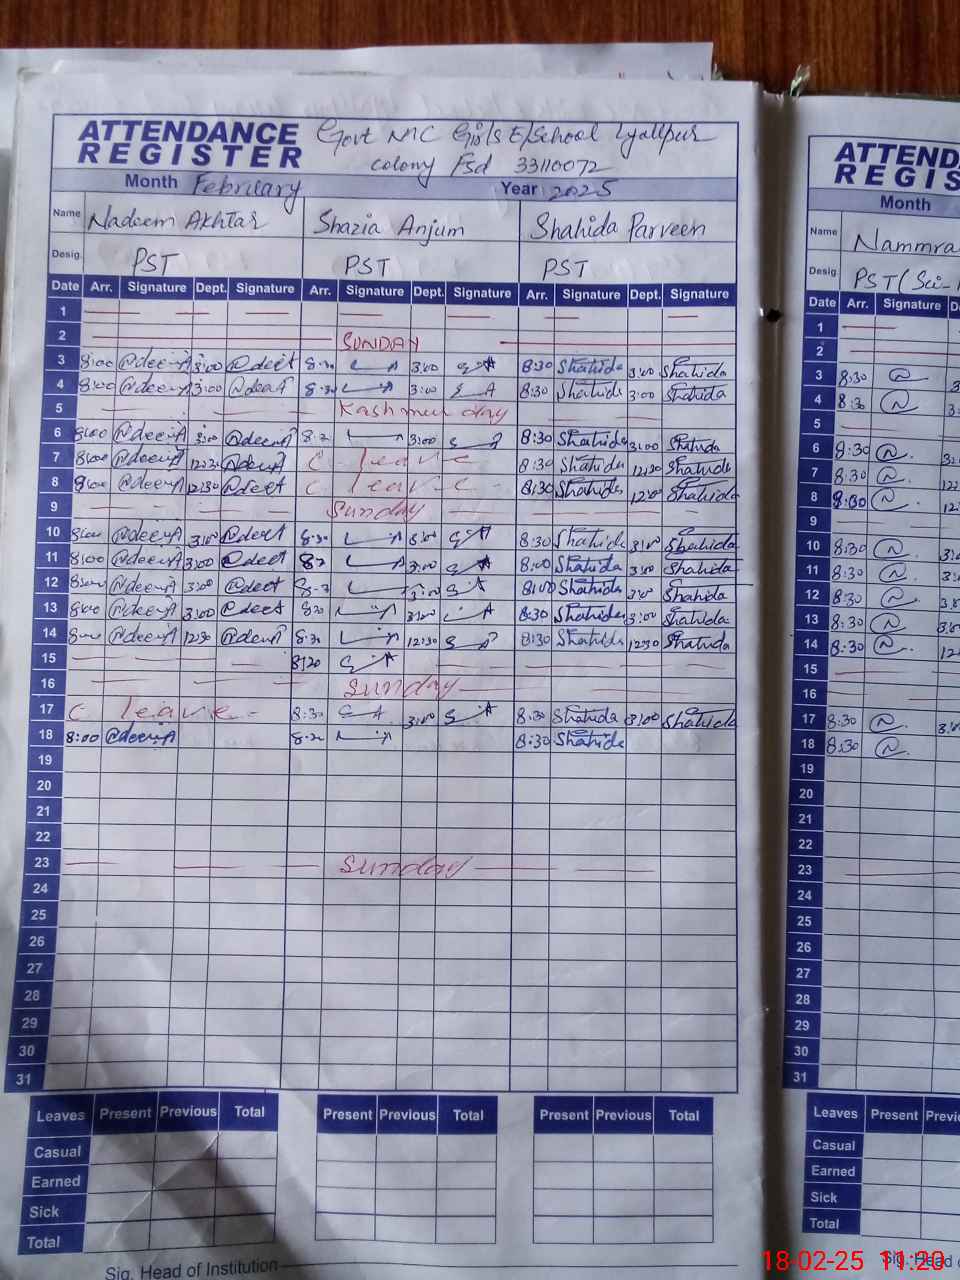 ATTENDANCE REGISTER
Govt MC Girls E/School Lyallpur
colony Fsd 33110072
Month February Year 2025
Name Nadeem Akhtar Shazia Anjum Shahida Parveen
Desig. PST PST PST
Date Arr. Signature Dept. Signature Arr. Signature Dept. Signature Arr. Signature Dept. Signature
1
2 SUNDAY
3 8:00 3:00 8:30 3:00 8:30 Shahida 3:00 Shahida
4 8:00 3:00 8:30 3:00 8:30 Shahida 3:00 Shahida
5 Kashmir day
6 8:00 3:00 3:00 8:30 Shahida 3:00 Shahida
7 8:00 12:30 C leave 8:30 Shahida 12:30 Shahida
8 8:00 12:30 C leave 8:30 Shahida Shahida
9 Sunday
10 8:00 3:00 8:30 3:00 8:30 Shahida 3:00 Shahida
11 8:00 3:00 3:00 8:00 Shahida 3:00 Shahida
12 8:00 3:00 3:00 8:00 Shahida 3:00 Shahida
13 8:00 3:00 3:00 8:30 Shahida 3:00 Shahida
14 8:00 12:30 8:30 12:30 8:30 Shahida 12:30 Shahida
15
16 Sunday
17 C leave 8:30 3:00 8:30 Shahida 3:00 Shahida
18 8:00 8:30 Shahida
19
20
21
22
23 Sunday
24
25
26
27
28
29
30
31
Leaves Present Previous Total Present Previous Total Present Previous Total
Casual
Earned
Sick
Total
Sig. Head of Institution
ATTEND
REGIS
Month
Name Nammra
Desig. PST (Sci-
Date Arr. Signature
1
2
3 8:30
4 8:30
5
6 8:30
7 8:30
8 8:30
9
10 8:30
11 8:30
12 8:30
13 8:30
14 8:30
15
16
17 8:30
18 8:30
19
20
21
22
23
24
25
26
27
28
29
30
31
Leaves Present
Casual
Earned
Sick
Total
Sig. Head
18-02-25 11:20